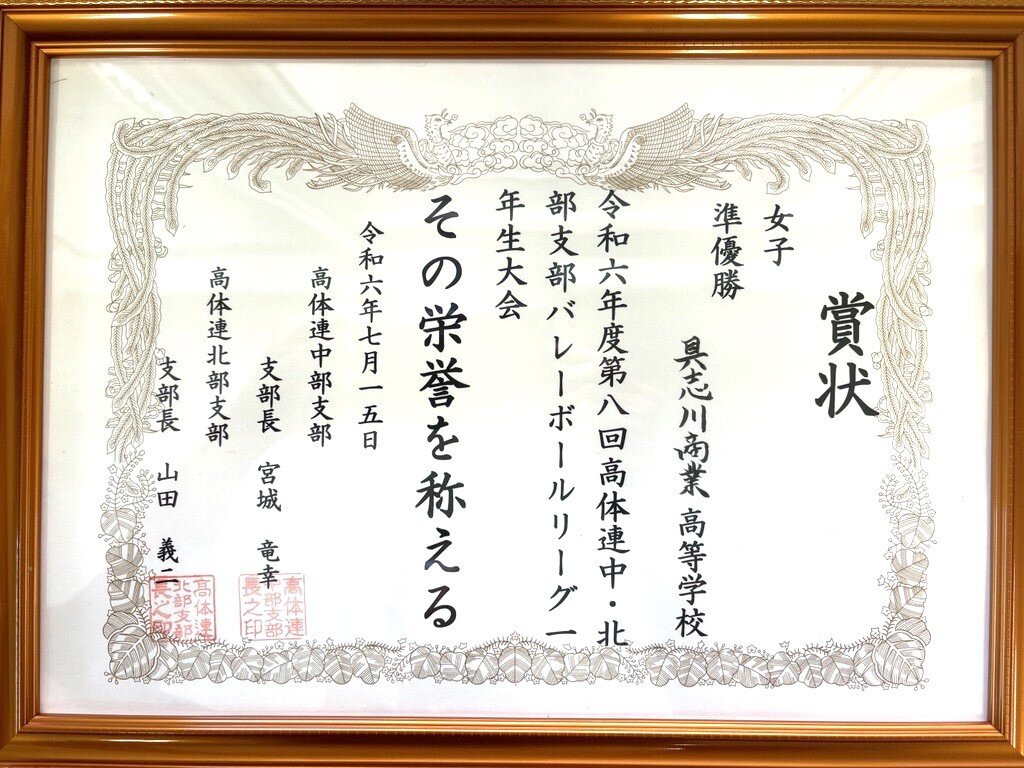 賞状
女子
準優勝
具志川商業高等学校
令和六年度第八回高体連中・北
部支部バレーボールリーグ一
年生大会
その栄誉を称える
令和六年七月一五日
高体連中部支部
支部長 宮城 竜幸
高体連北部支部
支部長 山田 義二
高体連
部支部
長之印
高体連
北部支部
長之印